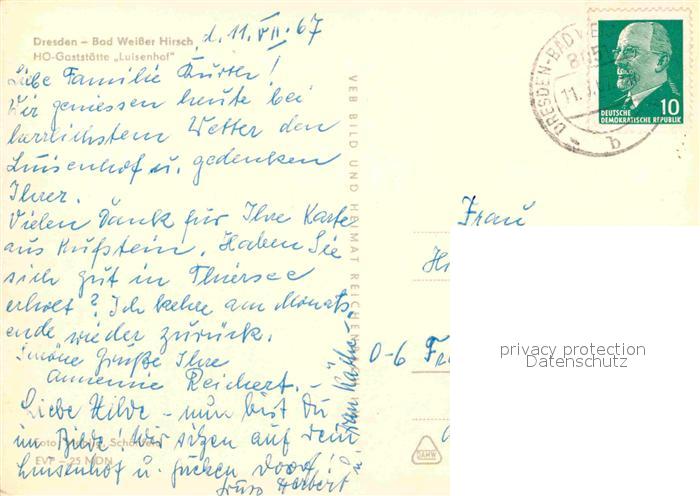 Dresden – Bad Weißer Hirsch
HO-Gaststätte „Luisenhof"
d. 11. VII. 67
Liebe Familie
Wir geniessen heute bei
herrlichstem Wetter den
Luisenhof u. gedenken
Ihrer.
Vielen Dank für Ihre Karte
aus Kufstein. Haben Sie
sich gut in Thiersee
erholt? Ich kehre am Monats
ende wieder zurück.
Schöne Grüße Ihre
Annemie Reichert. –
Liebe Hilde – nun bist Du
im Bilde! Wir sitzen auf dem
Luisenhof u. gucken doof!
Gruss Herbert
u.
Foto
EVP –25 MDN
VEB BILD UND HEIMAT REICHENBACH
DAMW
DRESDEN-BAD WEISSER
11.
b
10
DEUTSCHE
DEMOKRATISCHE REPUBLIK
Frau
privacy protection
Datenschutz